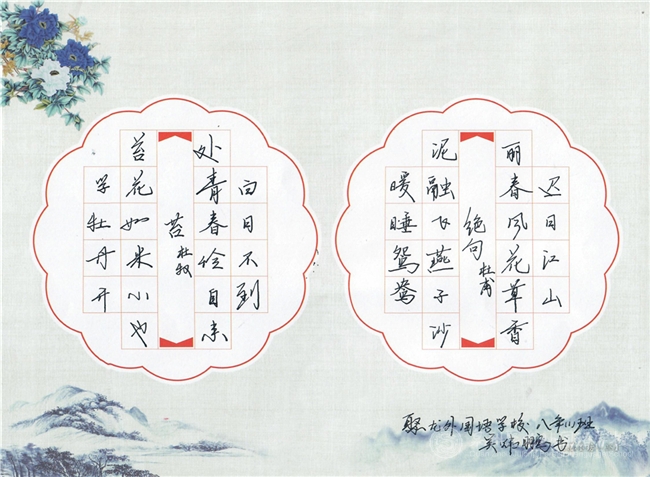 迟日江山
丽春风花草香
绝句
杜甫
泥融飞燕子沙
暖睡鸳鸯
白日不到
处青春恰自来
苔
杜牧
苔花如米小也
学牡丹开
聚龙外国语学校 八年11班
吴炜鹏书